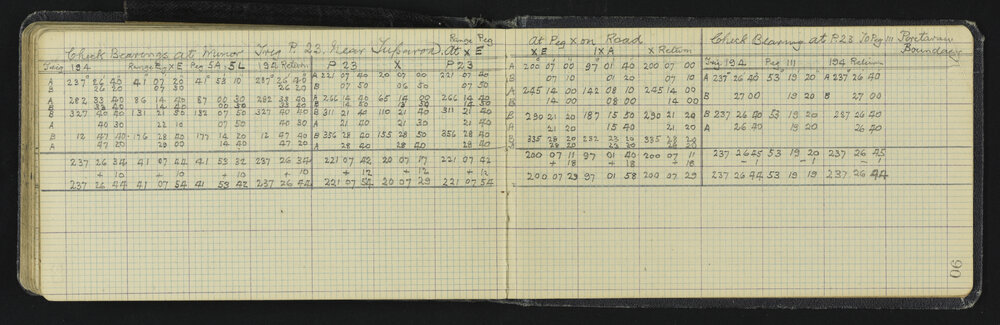 Check Bearings at Minor Trig P 23. Near Range Peg At X E
Trig 194 Range E X E Peg 5A, 5L 194 Return P 23 X P 23
A 237° 26 40 41° 07 20 41° 53 10 237° 26 40 A 221 07 40 20 07 00 221 07 40
B 26 20 07 30 26 20 B 07 50 06 50 07 50
A 282 33 40 86 14 40 87 00 30 282 38 40 A 266 14 40 65 14 00 266 14 40
B 327 40 40 131 21 50 132 07 50 327 40 40 B 311 21 40 110 21 40 311 21 40
A 40 30 22 10 07 50 40 30 A 21 40 21 30 21 40
B 12 47 40 176 28 40 177 14 20 12 47 40 B 356 28 40 155 28 50 356 28 40
A 47 20 29 00 14 40 47 20 A 28 40 28 40 28 40
237 26 34 41 07 44 41 53 32 237 26 34 221 07 42 20 07 17 221 07 42
+ 10 + 10 + 10 + 10 + 12 + 12 + 12
237 26 44 41 07 54 41 53 42 237 26 44 221 07 54 20 07 29 221 07 54
At Peg X on Road
X E 1 X A X Return
A 200° 07 00 97° 01 40 200 07 00
B 07 10 01 20 07 10
A 245 14 00 142 08 10 245 14 00
B 14 00 08 00 14 00
B 290 21 20 187 15 50 290 21 20
A 21 20 15 40 21 20
B 335 28 20 232 23 20 335 28 20
200 07 11 97 01 40 200 07 11
+ 18 + 18 + 18
200 07 29 97 01 58 200 07 29
Check Bearing at P.23 To Peg III Boundary
Trig 194 Peg III 194 Return
A 237 26 40 53 19 20 A 237 26 40
B 27 00 19 20 B 27 00
B 237 26 40 53 19 20 237 26 40
A 26 40 19 20 26 40
237 26 45 53 19 20 237 26 45
- 1 - 1 - 1
237 26 44 53 19 19 237 26 44
90